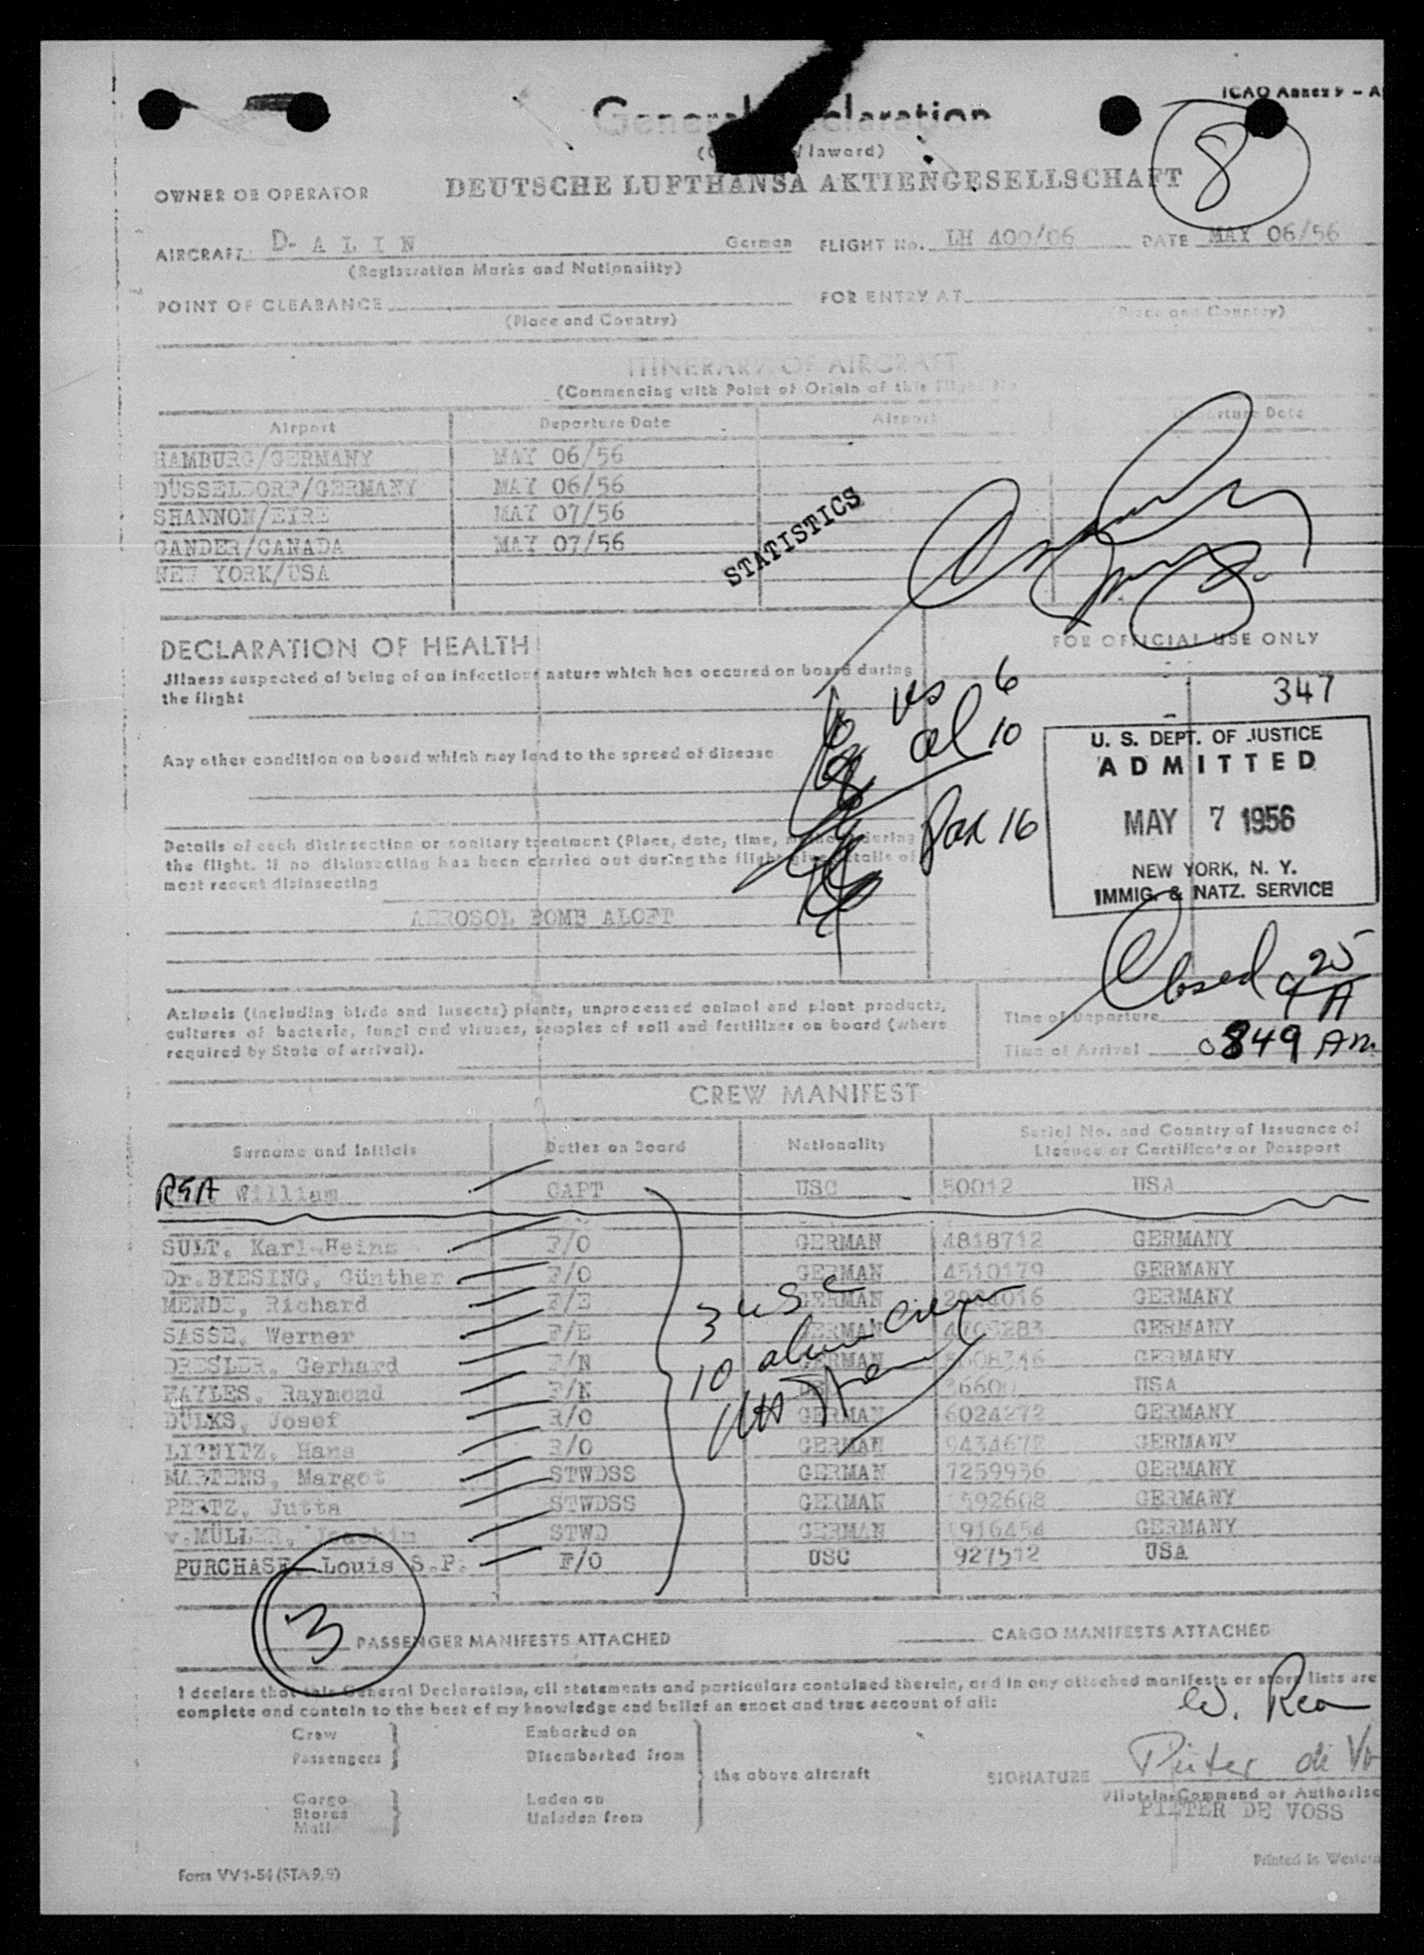 ICAO Annex 9 - A
General Declaration
(Outward/Inward)
8
OWNER OR OPERATOR DEUTSCHE LUFTHANSA AKTIENGESELLSCHAFT
AIRCRAFT D- A L I N German FLIGHT No. LH 400/06 DATE MAY 06/56
(Registration Marks and Nationality)
POINT OF CLEARANCE FOR ENTRY AT
(Place and Country) (Place and Country)
ITINERARY OF AIRCRAFT
(Commencing with Point of Origin of this Flight No
Airport Departure Date Airport Departure Date
HAMBURG/GERMANY MAY 06/56
DÜSSELDORF/GERMANY MAY 06/56
SHANNON/EIRE MAY 07/56
GANDER/CANADA MAY 07/56
NEW YORK/USA
STATISTICS
DECLARATION OF HEALTH
FOR OFFICIAL USE ONLY
Illness suspected of being of an infectious nature which has occured on board during
the flight
347
6
al 10
Pax 16
U. S. DEPT. OF JUSTICE
ADMITTED
MAY 7 1956
NEW YORK, N. Y.
IMMIG. & NATZ. SERVICE
Any other condition on board which may lead to the spread of disease
Details of each disinsecting or sanitary treatment (Place, date, time, during
the flight. If no disinsecting has been carried out during the flight give details of
most recent disinsecting
AEROSOL BOMB ALOFT
Closed 9 25 A
Animals (including birds and insects) plants, unprocessed animal and plant products,
cultures of bacteria, fungi and viruses, samples of soil and fertilizer on board (where
required by State of arrival).
Time of Departure
Time of Arrival 0849 Am
CREW MANIFEST
Surname and Initials Duties on Board Nationality Serial No. and Country of Issuance of
Licence or Certificate or Passport
REA William CAPT USC 50012 USA
SULT, Karl-Heinz F/O GERMAN 4818712 GERMANY
Dr.BIESING, Günther F/O GERMAN 4510179 GERMANY
MENDE, Richard F/E GERMAN GERMANY
SASSE, Werner F/E GERMAN GERMANY
DRESLER, Gerhard F/N GERMAN GERMANY
HAYLES, Raymond F/N USA
DÜLKS, Josef R/O GERMAN 6024272 GERMANY
LIGNITZ, Hans R/O GERMAN GERMANY
MARTENS, Margot STWDSS GERMAN 7259936 GERMANY
PERTZ, Jutta STWDSS GERMAN GERMANY
v.MÜLLER, Joachim STWD GERMAN GERMANY
PURCHASE, Louis S.P. F/O USC 927512 USA
3 usc
10 alien crew
3
PASSENGER MANIFESTS ATTACHED CARGO MANIFESTS ATTACHED
I declare that this General Declaration, all statements and particulars contained therein, and in any attached manifests or store lists are
complete and contain to the best of my knowledge and belief an exact and true account of all:
W. Rea
Crew Embarked on
Passengers Disembarked from
the above aircraft
SIGNATURE Pieter de Vo
Cargo Laden on
Stores Unladen from
Mail
Pilot-in-Command or Authorise
PIETER DE VOSS
Form VV 1-54 (STA 9,9)
Printed in Western